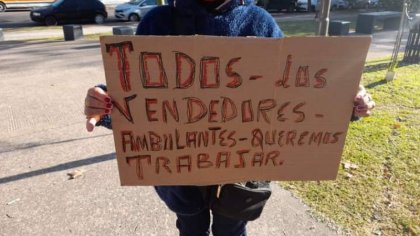 TODOS - LOS
VENDEDORES -
AMBULANTES - QUEREMOS
TRABAJAR.